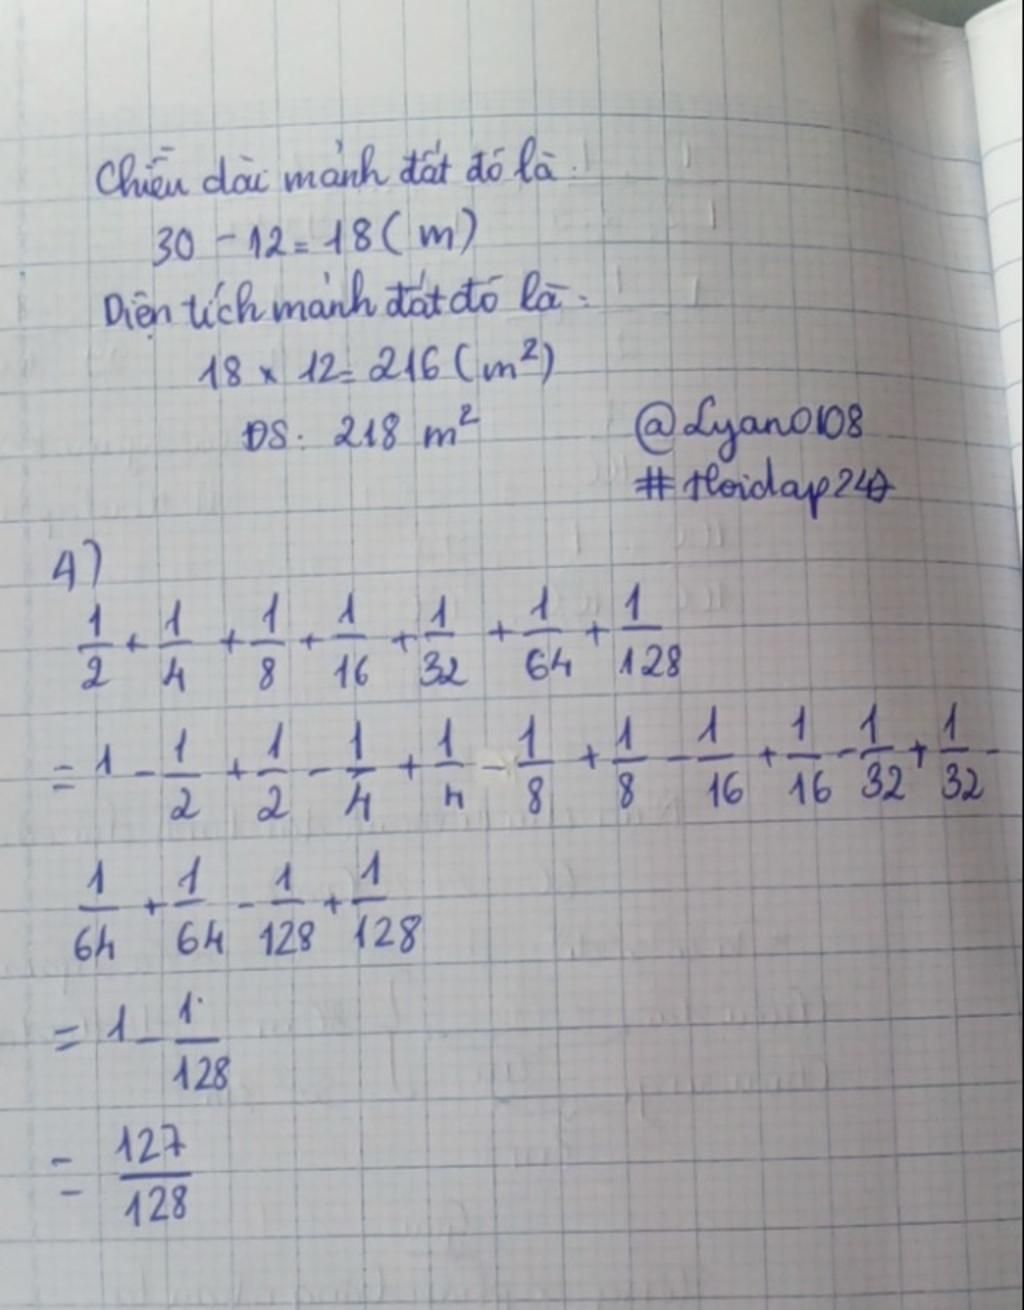 Chiều dài mảnh đất đó là:
30 - 12 = 18 (m)
Diện tích mảnh đất đó là:
18 x 12 = 216 (m²)
ĐS: 218 m²
@Lyan0108
#Hoidap247
4)
1/2 + 1/4 + 1/8 + 1/16 + 1/32 + 1/64 + 1/128
= 1 - 1/2 + 1/2 - 1/4 + 1/4 - 1/8 + 1/8 - 1/16 + 1/16 - 1/32 + 1/32 -
1/64 + 1/64 - 1/128 + 1/128
= 1 - 1/128
= 127/128